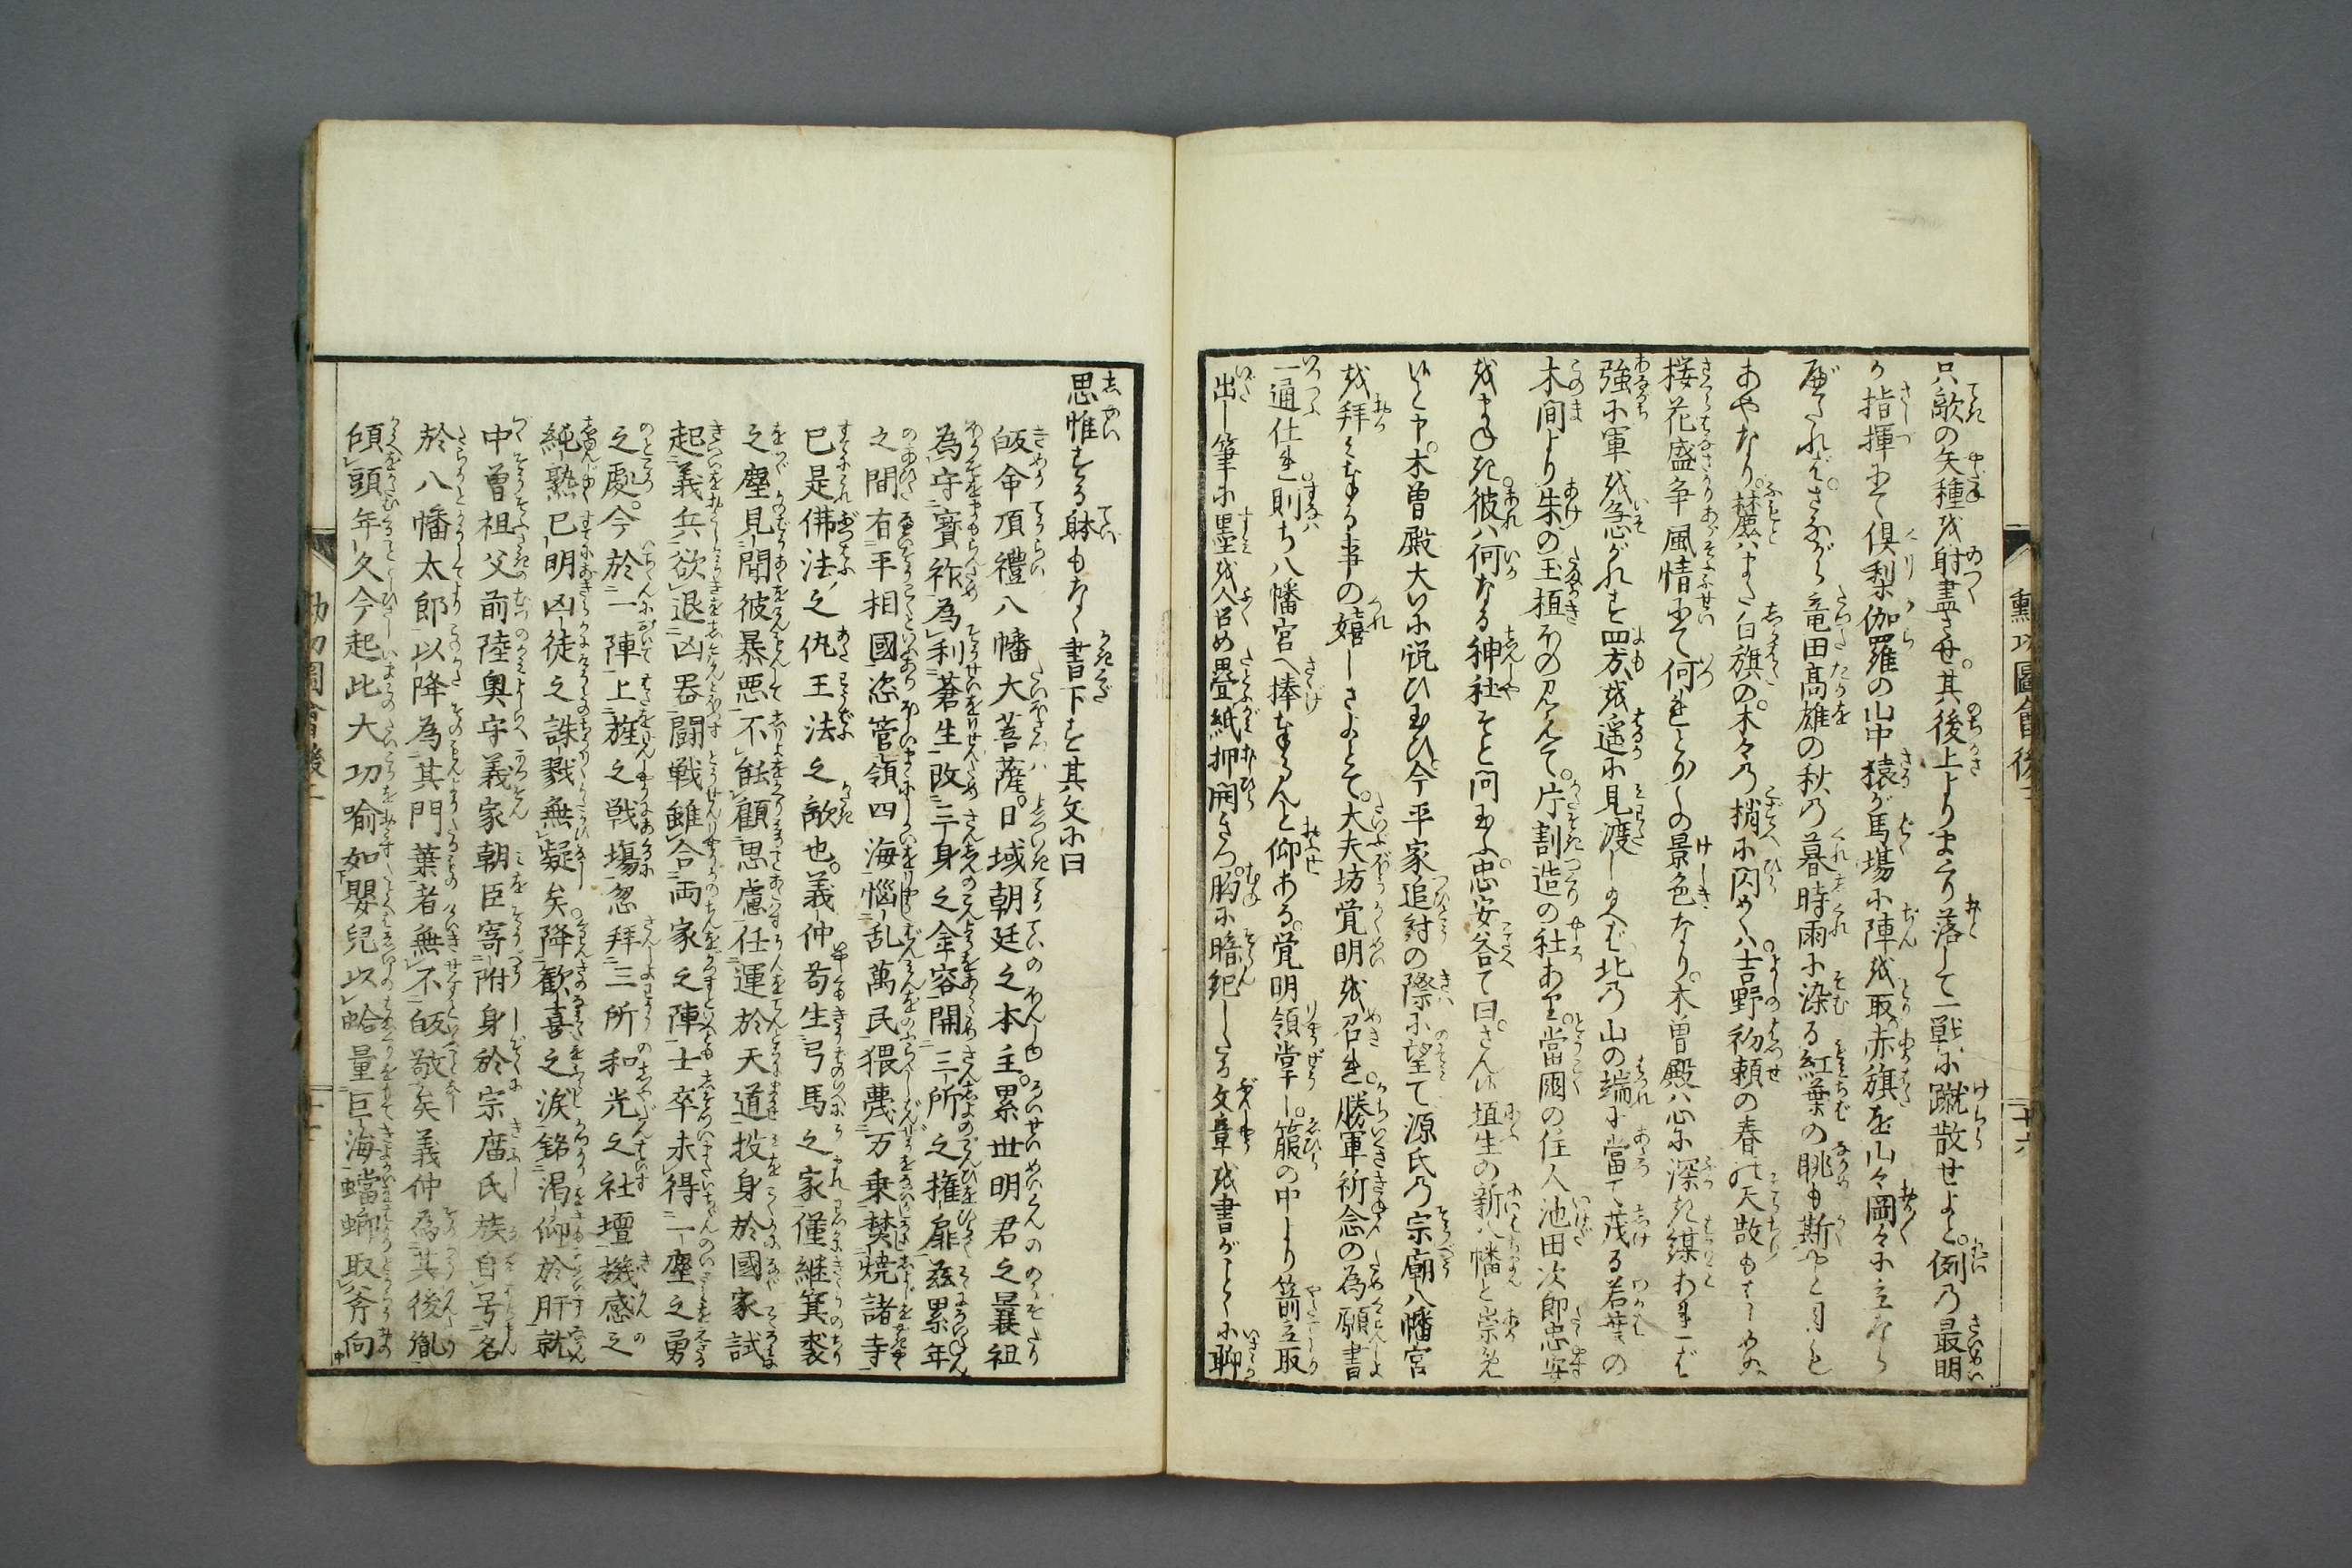 只敵の矢種を射盡させ。其後上よりまくり落して一戦に蹴散せよと。例の最明
が指揮にて倶梨伽羅の山中猿が馬場に陣を取。赤旗を山々岡々に立なら
されば。さながら竜田高雄の秋の暮時雨に染る紅葉の眺も斯やと
あやなり。麓はまた白旗の。木々の梢に閃めくは吉野初瀬の春の
桜花盛争風情にて何れとりの景色なり。木曽殿は心に深き謀あれば
強に軍を急がれず四方を遥に見渡し北の山の端に當て茂る若葉の
木間より朱の玉垣ほの見えて。片割造の社あり。當國の住人池田次郎忠安
をまねき。彼は何なる神社ぞと問玉ふ。忠安答て曰。さん候埴生の新八幡と崇
候と申。木曽殿大いに悦び玉ひ。今平家追討の際に望て源氏の宗廟八幡宮
を拝み奉る事の嬉しさよとて。大夫坊覚明を召れ。勝軍祈念の為願書
一通仕れ。則ち八幡宮へ捧奉らんと仰ある。覚明領掌し。箙の中より箭立取
出し筆に墨を含め畳紙押開きつ。胸に暗紀したる文章を書がごとくに聊
思惟する躰もなく書下す其文に曰
皈命頂禮八幡大菩薩。日域朝廷之本主。累世明君之曩祖
為守寳祚為利蒼生改三身之金容開三所之権扉茲累年
之間有平相國恣管領四海惱乱萬民猥蔑万乗焚焼諸寺
已是佛法之仇王法之敵也。義仲苟生弓馬之家僅継箕裘
之塵見聞彼暴悪不能顧思慮任運於天道投身於國家試
起義兵欲退凶器闘戦雖合両家之陣士卒未得一塵之勇
之處。今於一陣上旌之戦場忽拝三所和光之社壇機感之
純熟已明凶徒之誅戮無疑矣降歓喜之涙銘渇仰於肝就
中曽祖父前陸奥守義家朝臣寄附身於宗廟氏族自号名
於八幡太郎以降為其門葉者無不皈敬矣義仲為其後胤
傾頭年久今起此大功喩如嬰兒以蛤量巨海蟷螂取斧向
勲功圖會後二
十六